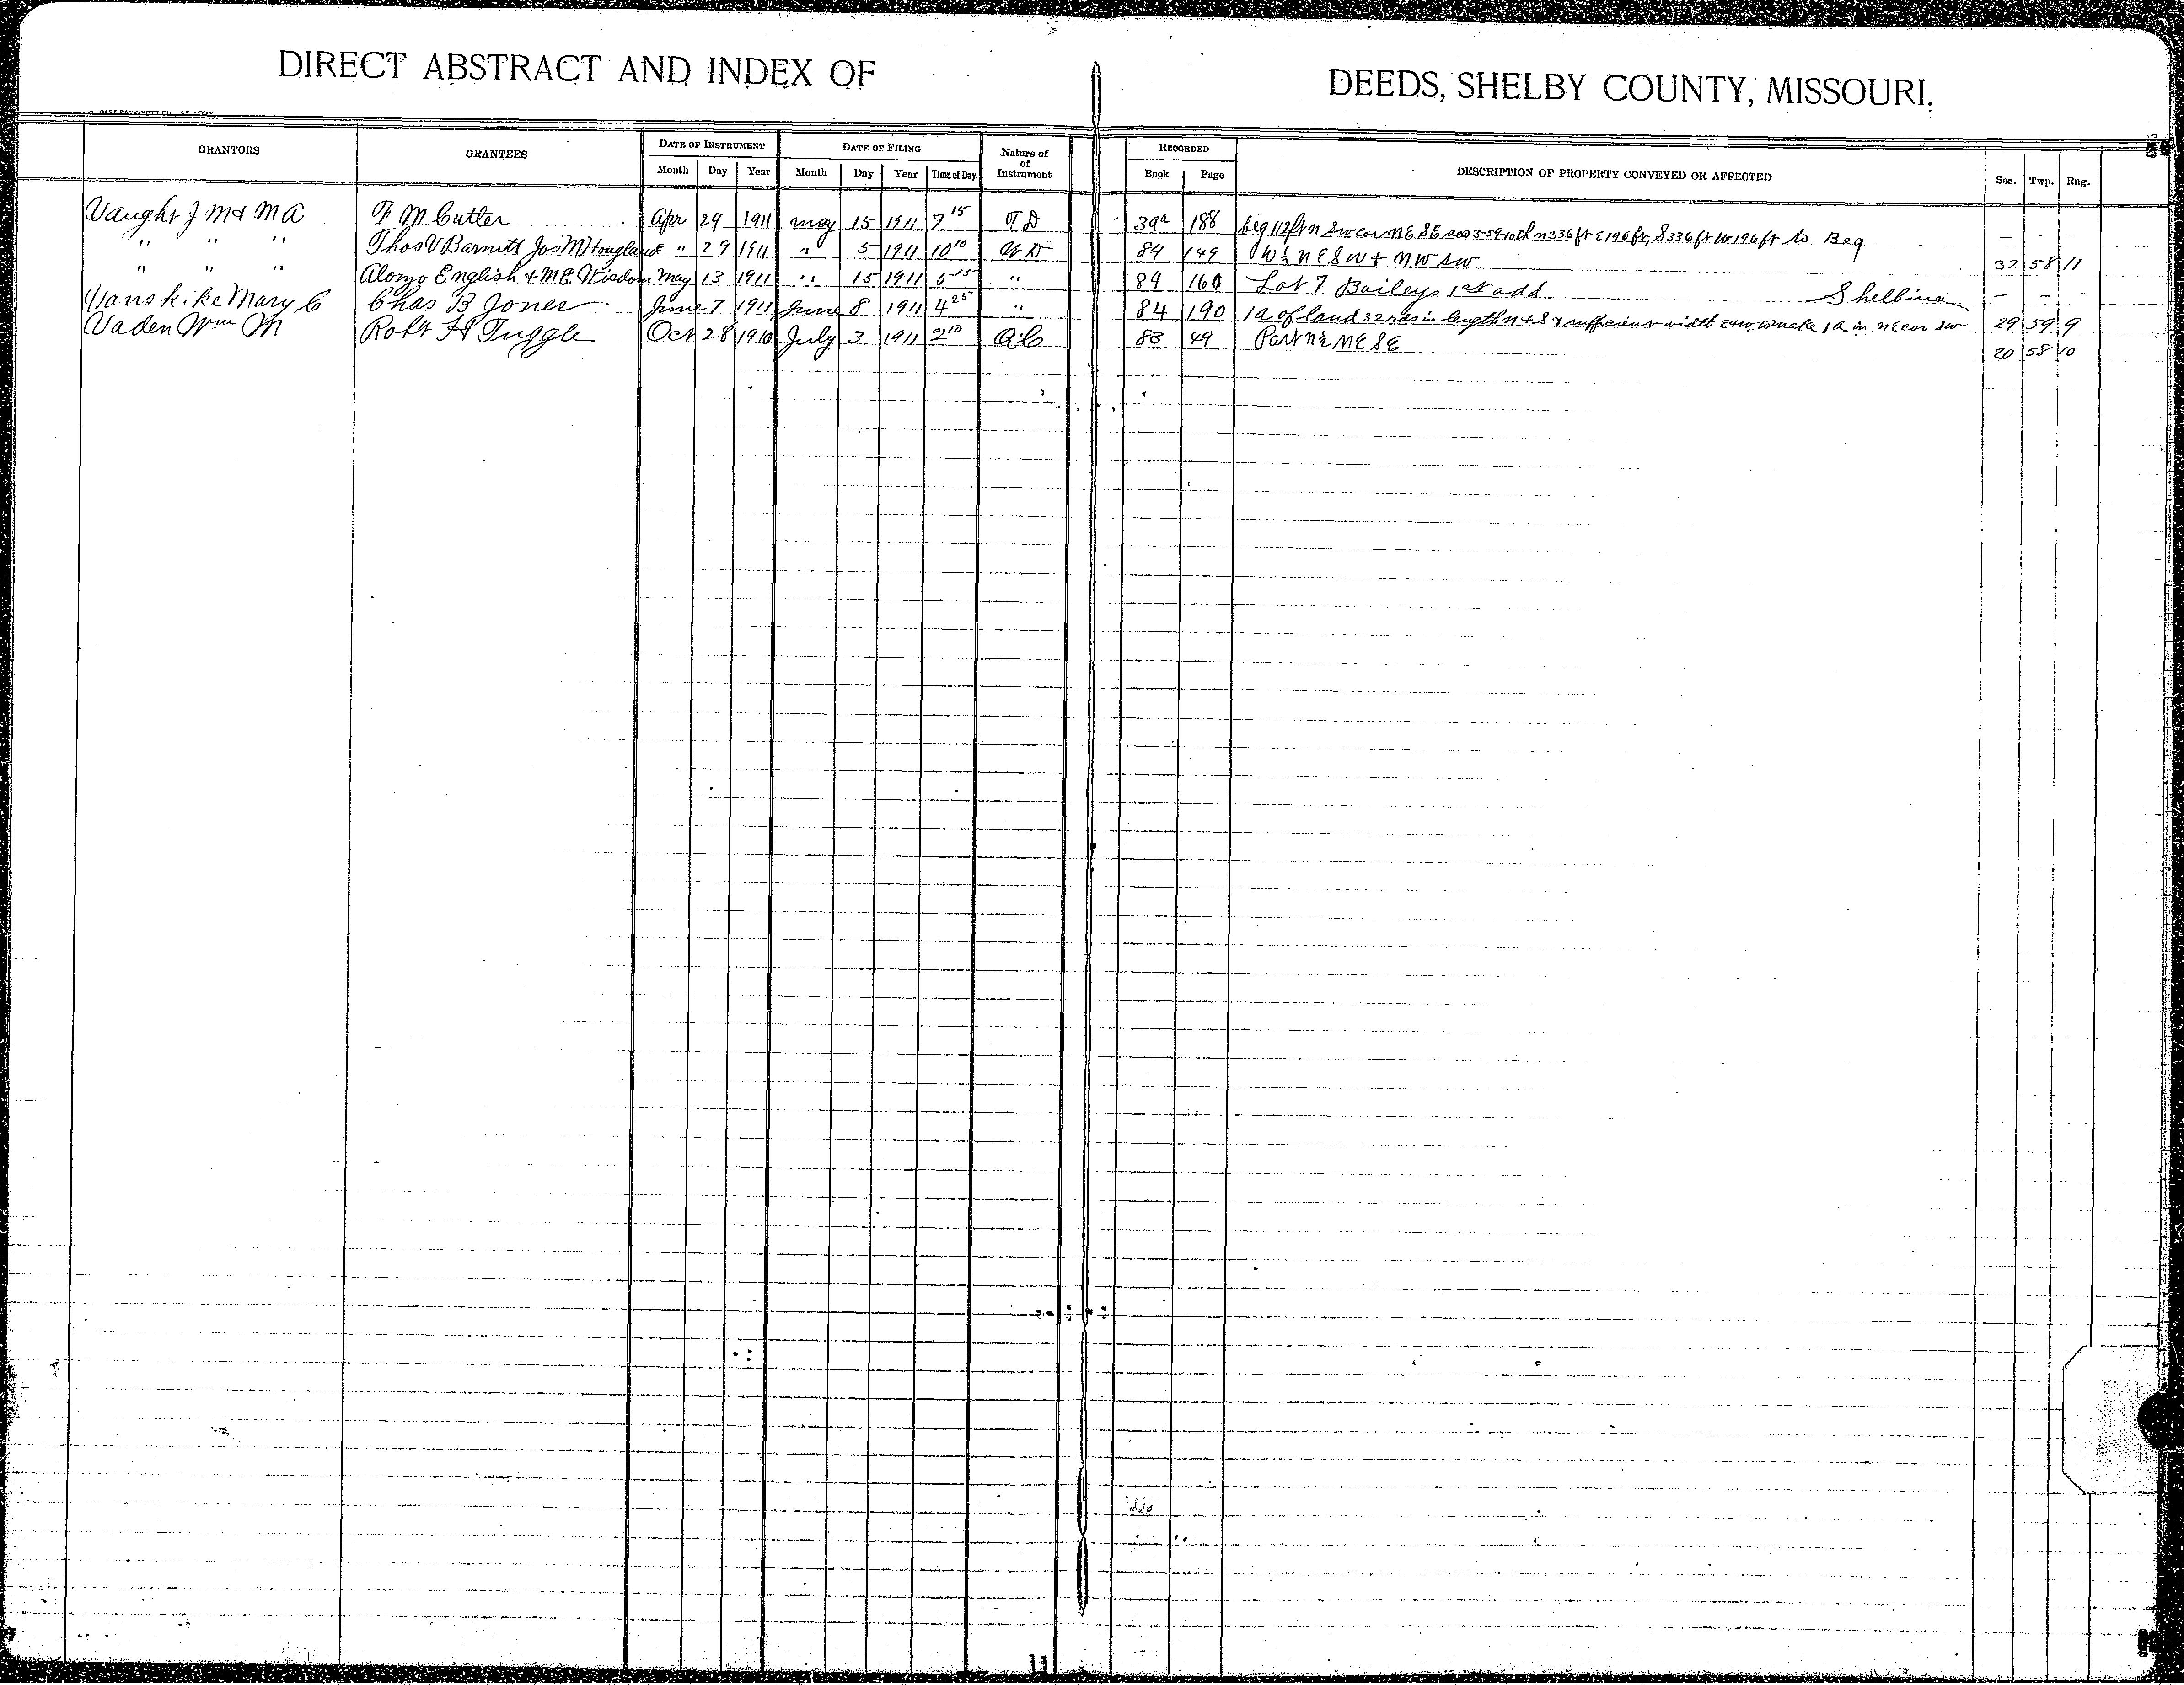 DIRECT ABSTRACT AND INDEX OF DEEDS, SHELBY COUNTY, MISSOURI.
GRANTORS GRANTEES DATE OF INSTRUMENT DATE OF FILING Nature of of Instrument RECORDED DESCRIPTION OF PROPERTY CONVEYED OR AFFECTED Sec. Twp. Rng.
Month Day Year Month Day Year Time of Day Book Page
Vaught J M & M A F M Cutter Apr 29 1911 May 15 1911 7 15 T D 39a 188 beg 112 ft n Sw cor NE SE sec 3-59-10 th n 336 ft E 196 ft, S 336 ft W 196 ft to Beg - - -
" " " Thos V Barnett Jos M Hougland " 29 1911 " 5 1911 10 10 W D 84 149 W ½ N E S W & N W S W 32 58 11
" " " Alonzo English & M E Wisdom May 13 1911 " 15 1911 5 15 " 84 160 Lot 7 Baileys 1st add Shelbina - - -
Vanskike Mary C Chas B Jones June 7 1911 June 8 1911 4 25 " 84 190 1a of land 32 rds in length n & S & sufficient width E & W to make 1a in n E cor Sw 29 59 9
Vaden Wm M Robt H Tuggle Oct 28 1910 July 3 1911 2 10 Q.C 83 49 Part N ½ NE SE 20 58 10
11